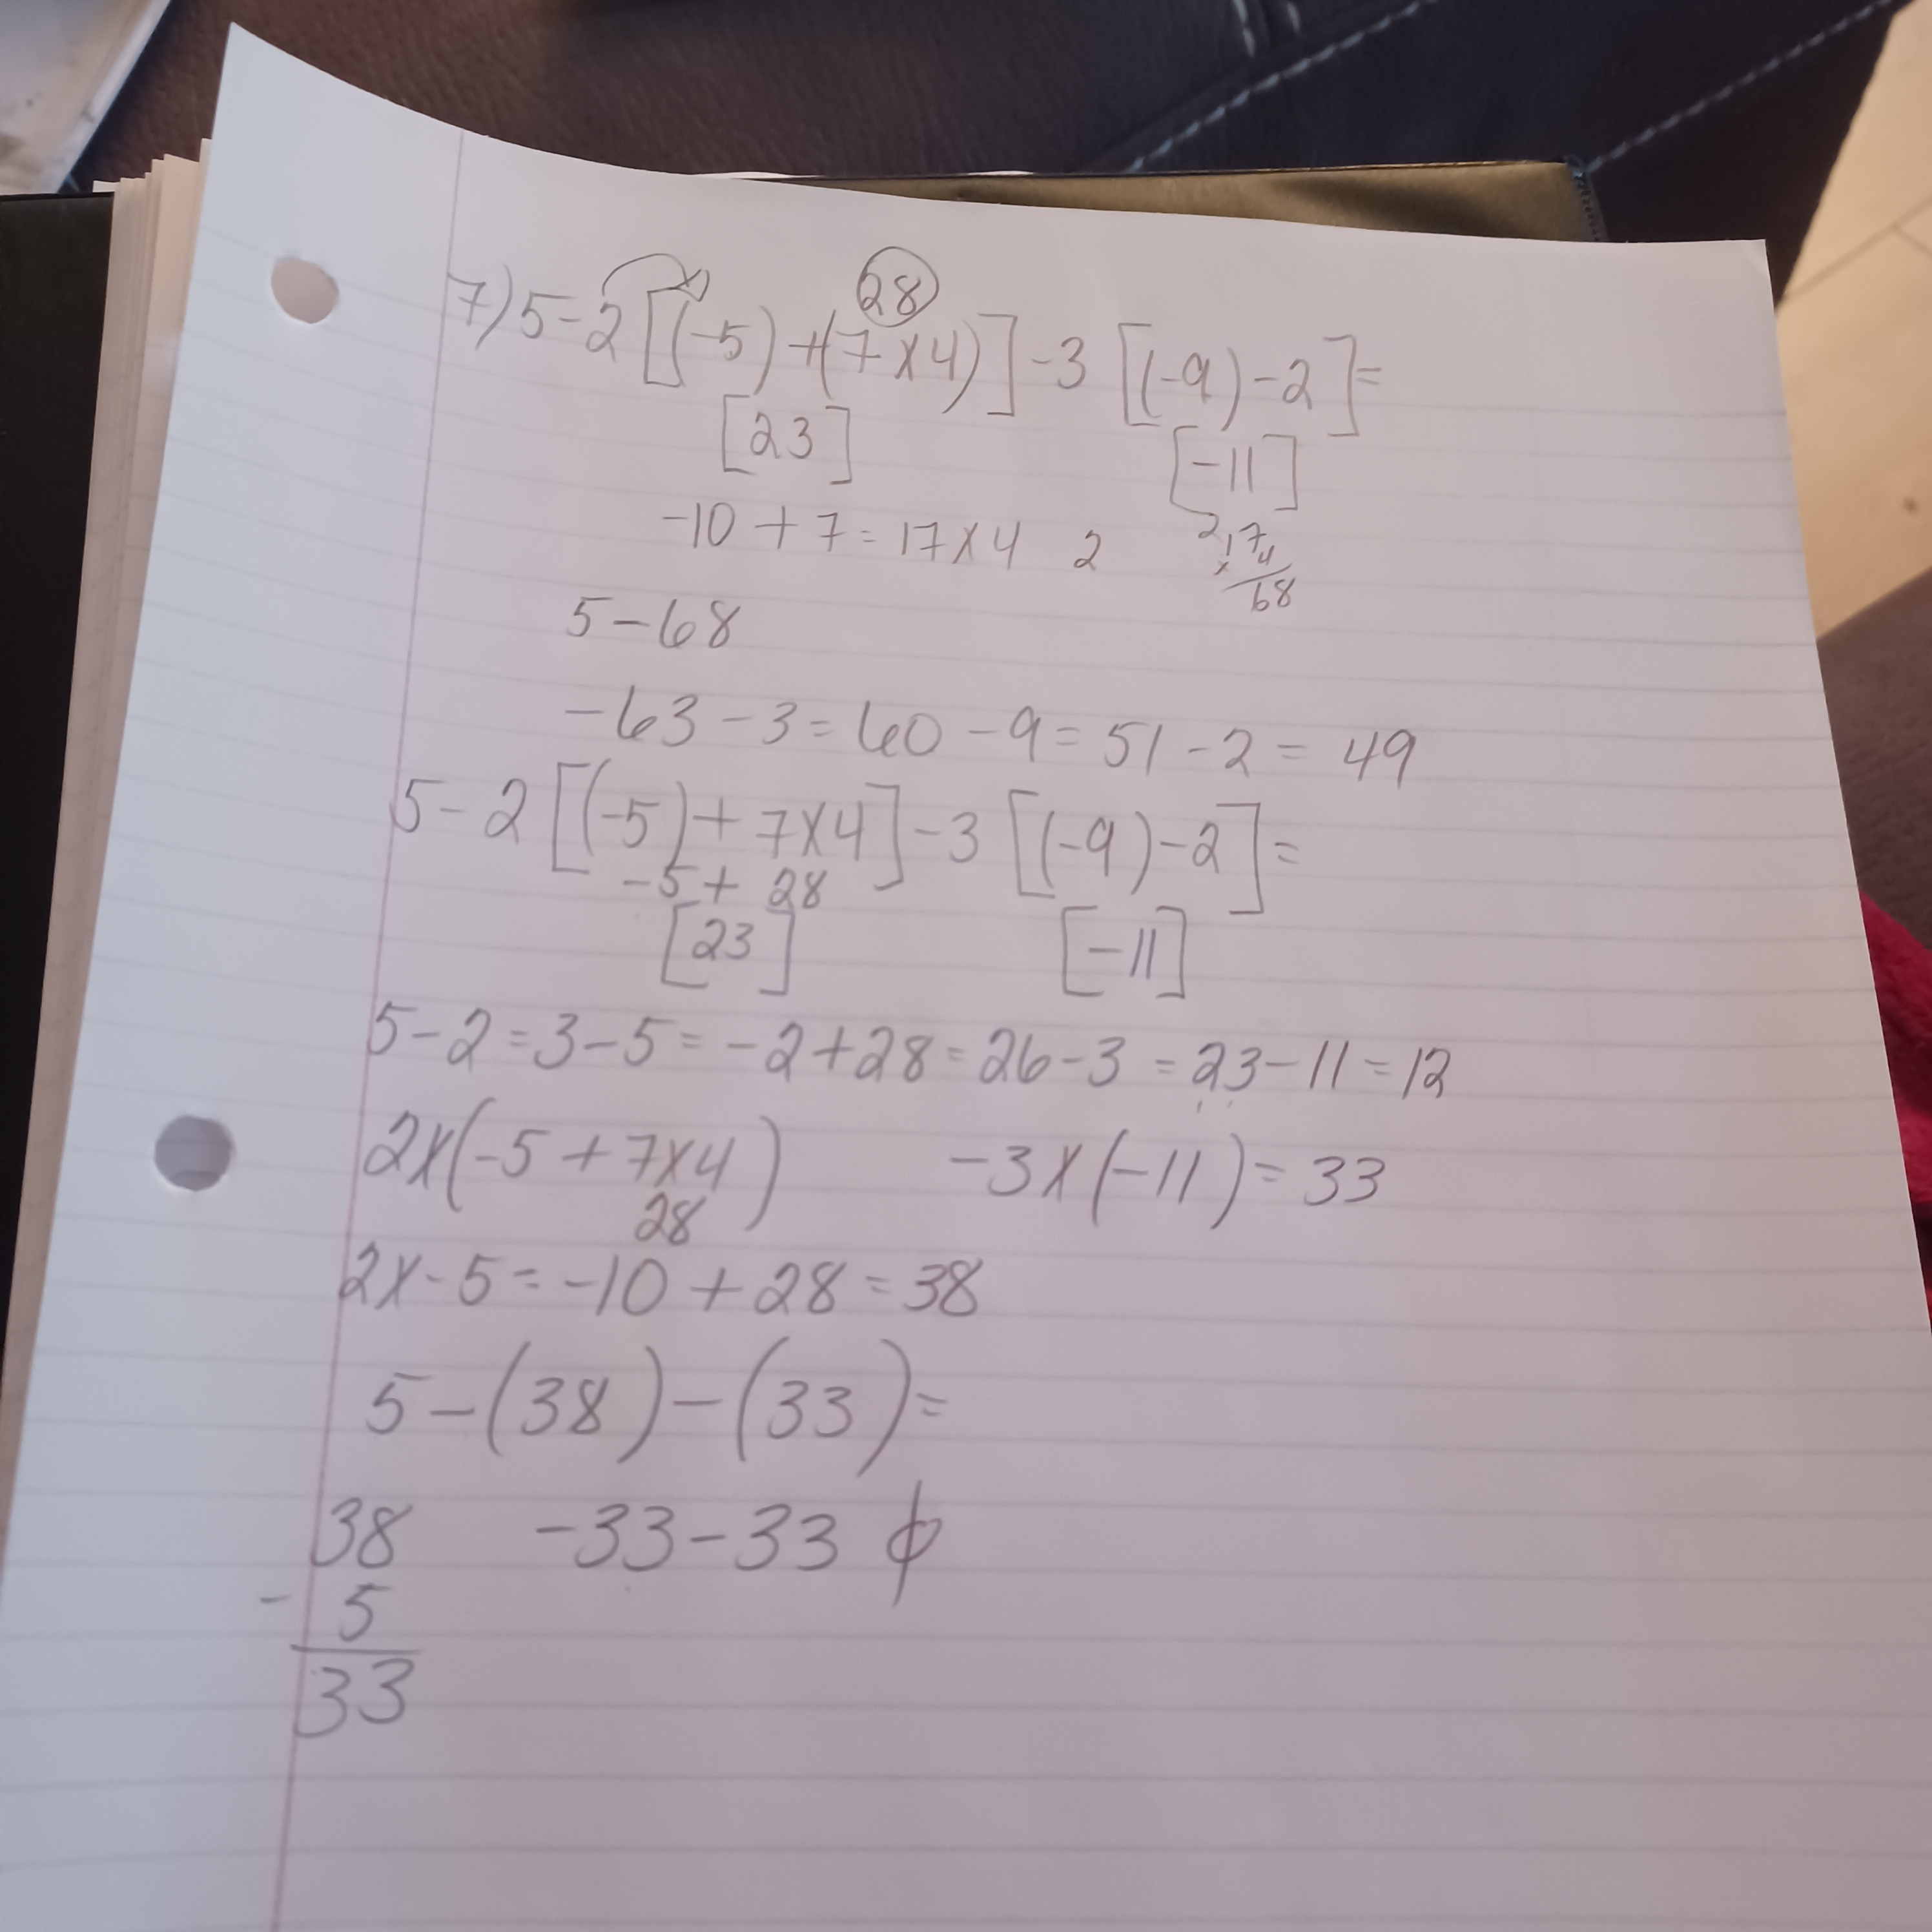 28
7) 5-2[(-5)+(7x4)]-3[(-9)-2]=
[23] [-11]
-10+7=17x4 2
2
17
x4
68
5-68
-63-3=60-9=51-2=49
5-2[(-5)+7x4]-3[(-9)-2]=
-5+ 28
[23] [-11]
5-2=3-5=-2+28=26-3=23-11=12
2x(-5+7x4) -3x(-11)=33
28
2x-5=-10+28=38
5-(38)-(33)=
38 -33-33
-5
33